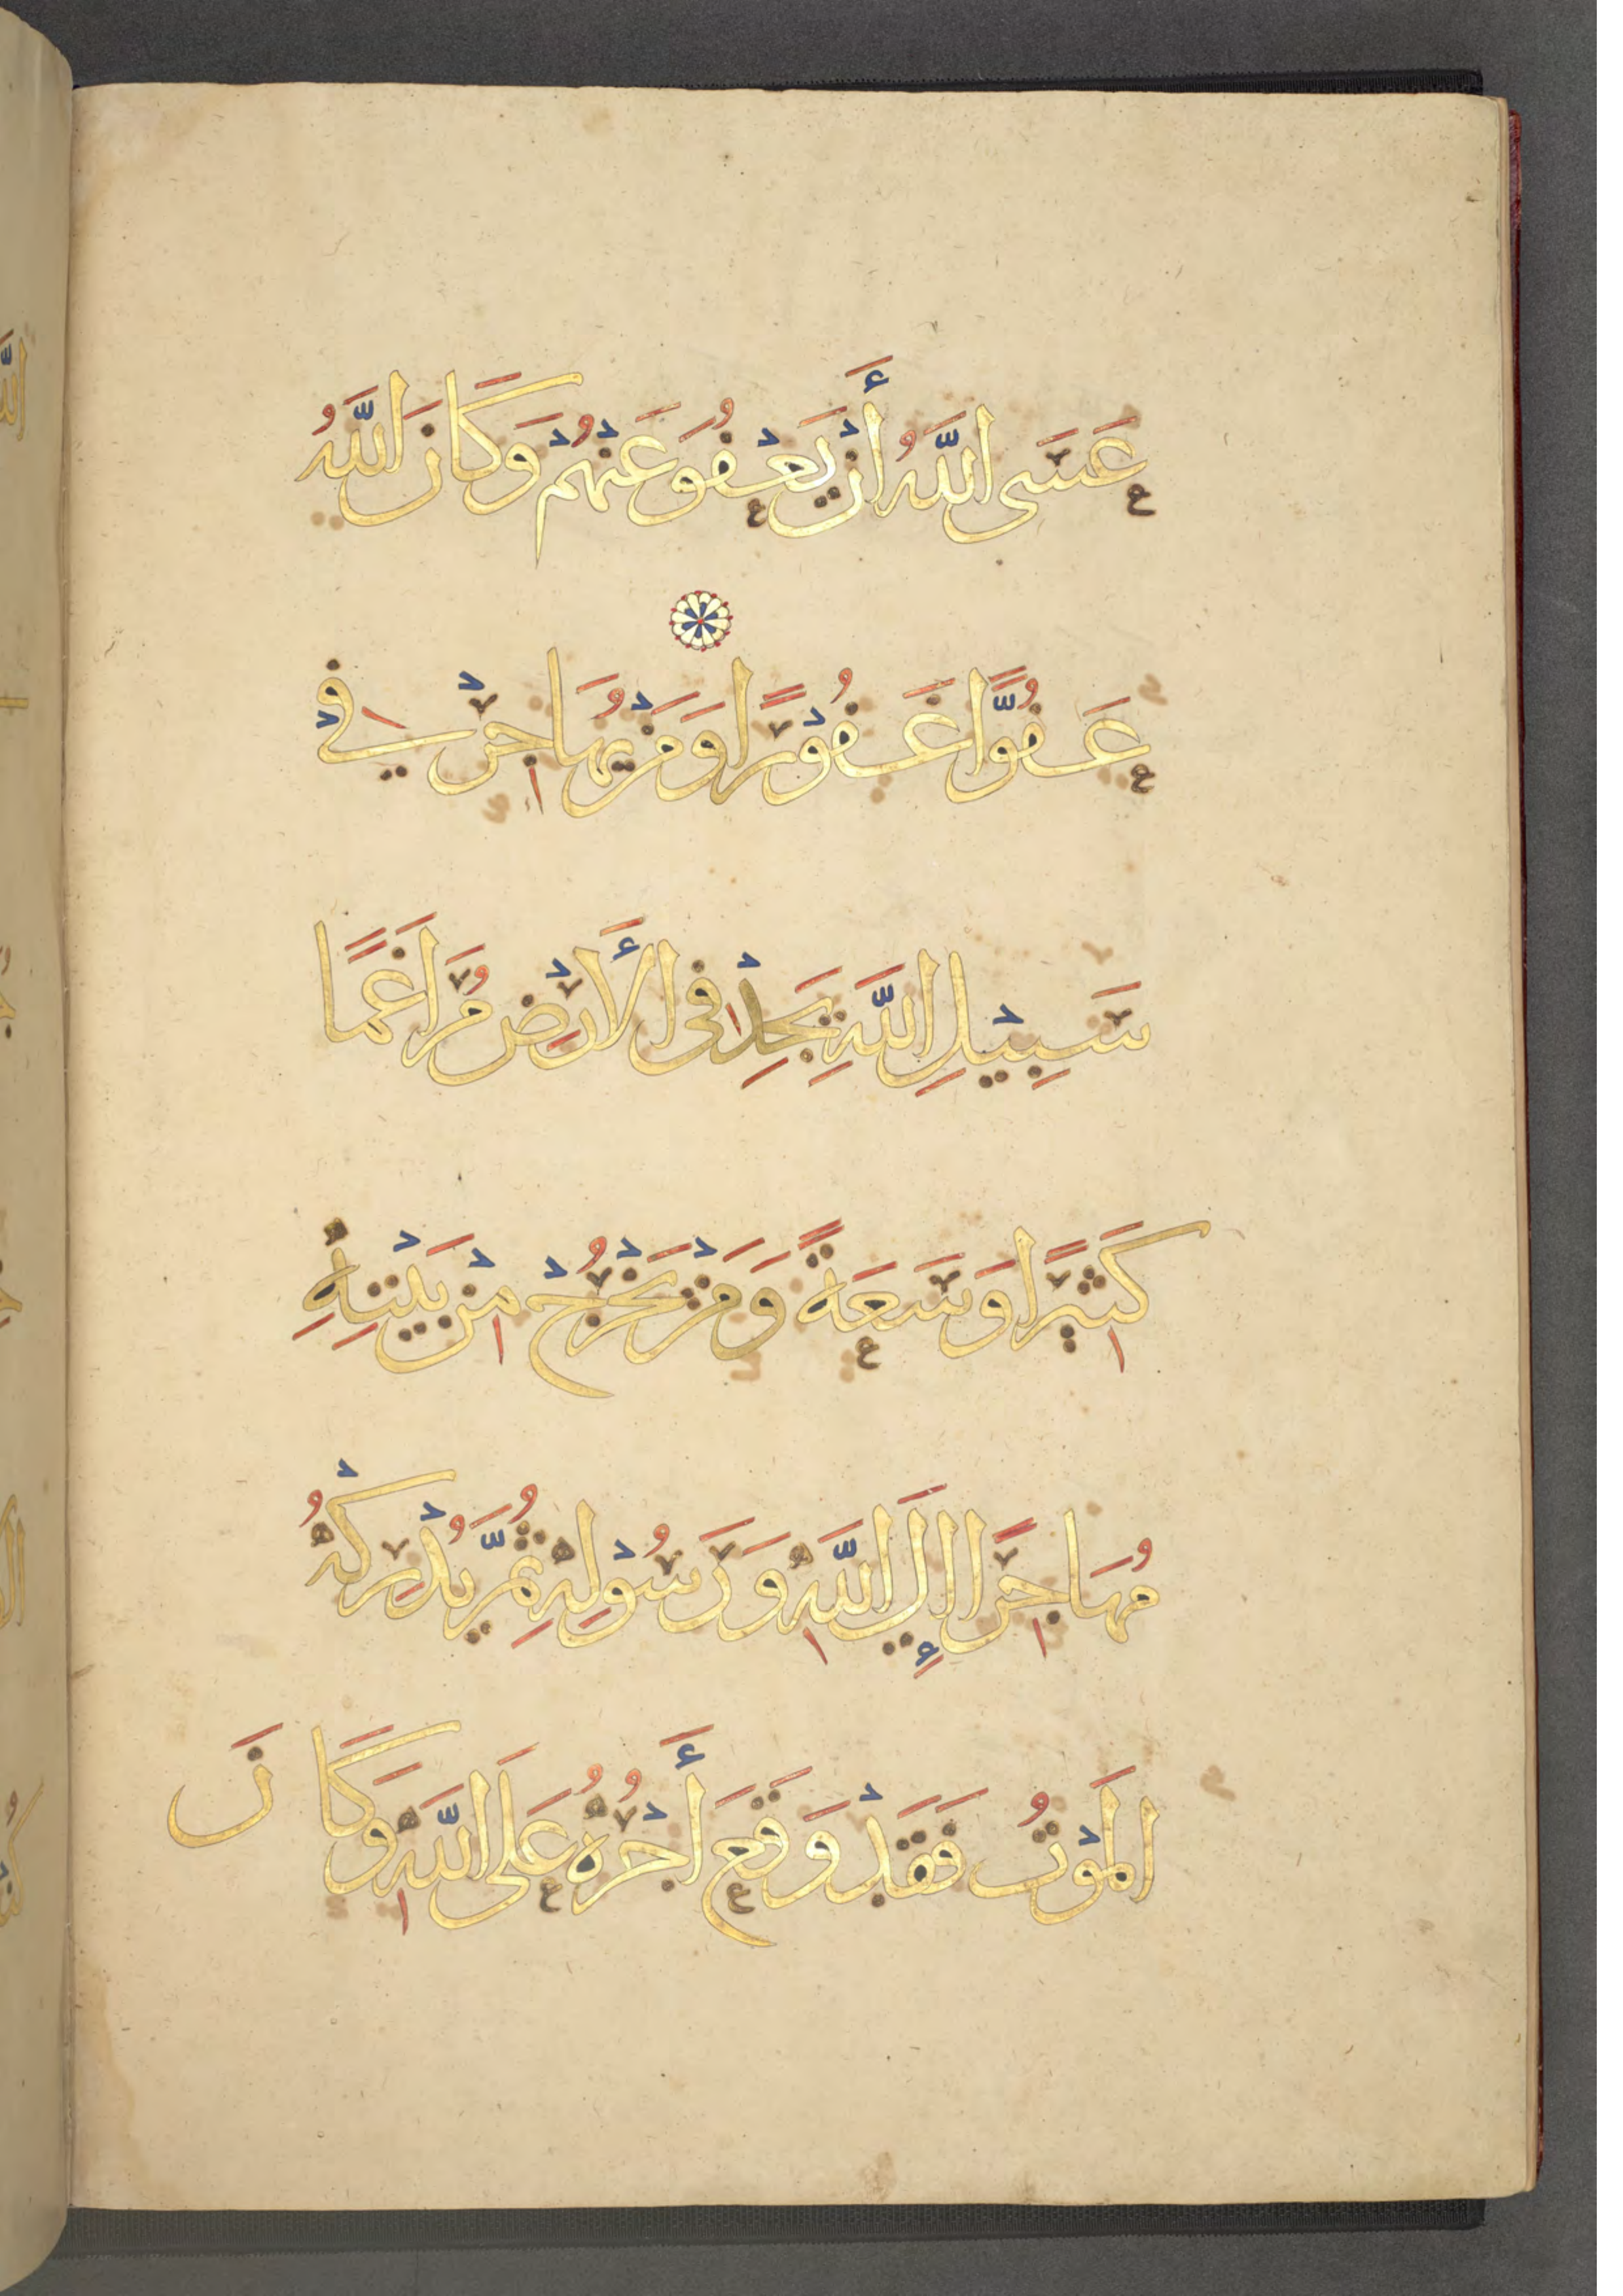 عَسَى اللَّهُ أَنْ يَعْفُوَ عَنْهُمْ وَكَانَ اللَّهُ
عَفُوًّا غَفُوْرًا وَمَنْ يُهَاجِرْ فِيْ
سَبِيْلِ اللَّهِ يَجِدْ فِى الْأَرْضِ مُرَاغَمًا
كَثِيْرًا وَسَعَةً وَمَنْ يَخْرُجْ مِنْ بَيْتِهِ
مُهَاجِرًا إِلَى اللَّهِ وَرَسُوْلِهِ ثُمَّ يُدْرِكْهُ
الْمَوْتُ فَقَدْ وَقَعَ أَجْرُهُ عَلَى اللَّهِ وَكَانَ